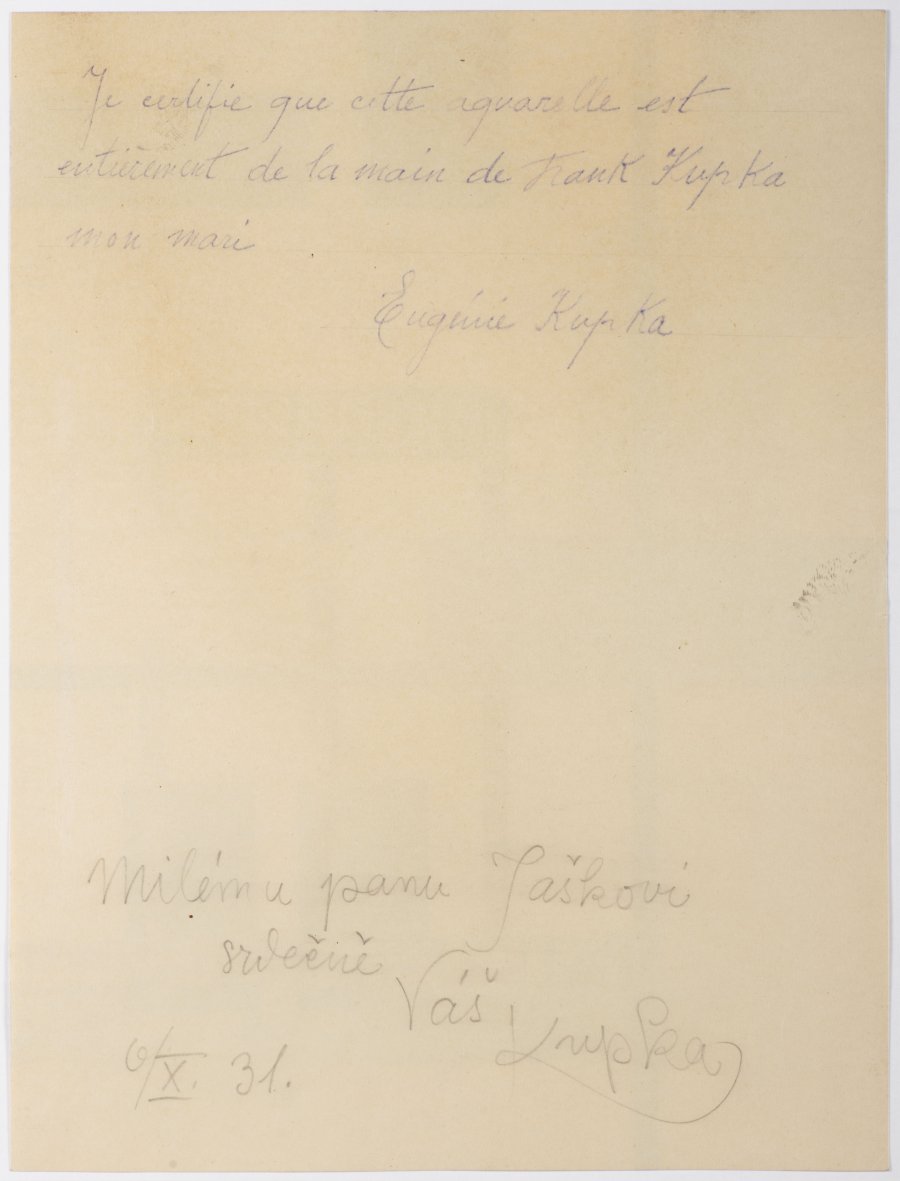 Je certifie que cette aquarelle est
entièrement de la main de Frank Kupka
mon mari
Eugénie Kupka
Milému panu Jaškovi
srdečně
Váš
Kupka
6/X. 31.